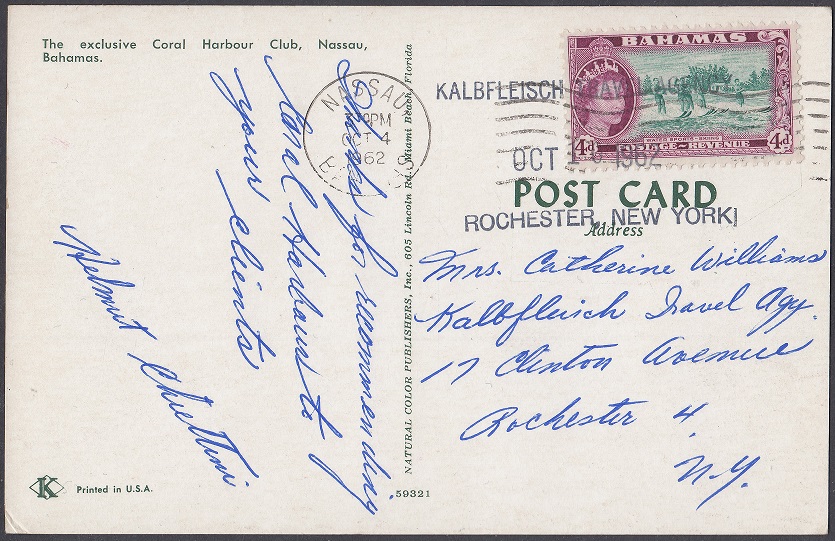 The exclusive Coral Harbour Club, Nassau,
Bahamas.
Thanks for recommending
Coral Harbour to
your clients
Helmut
NASSAU
PM
OCT 4
1962
BAHAMAS
NATURAL COLOR PUBLISHERS, Inc., 605 Lincoln Rd., Miami Beach, Florida
KALBFLEISCH TRAVEL AGENCY
OCT 1962
ROCHESTER, NEW YORK
BAHAMAS
4d
POSTAGE~REVENUE
4d
POST CARD
Address
Mrs. Catherine Williams
Kalbfleisch Travel Agy.
17 Clinton Avenue
Rochester 4,
N.Y.
K
Printed in U.S.A.
59321